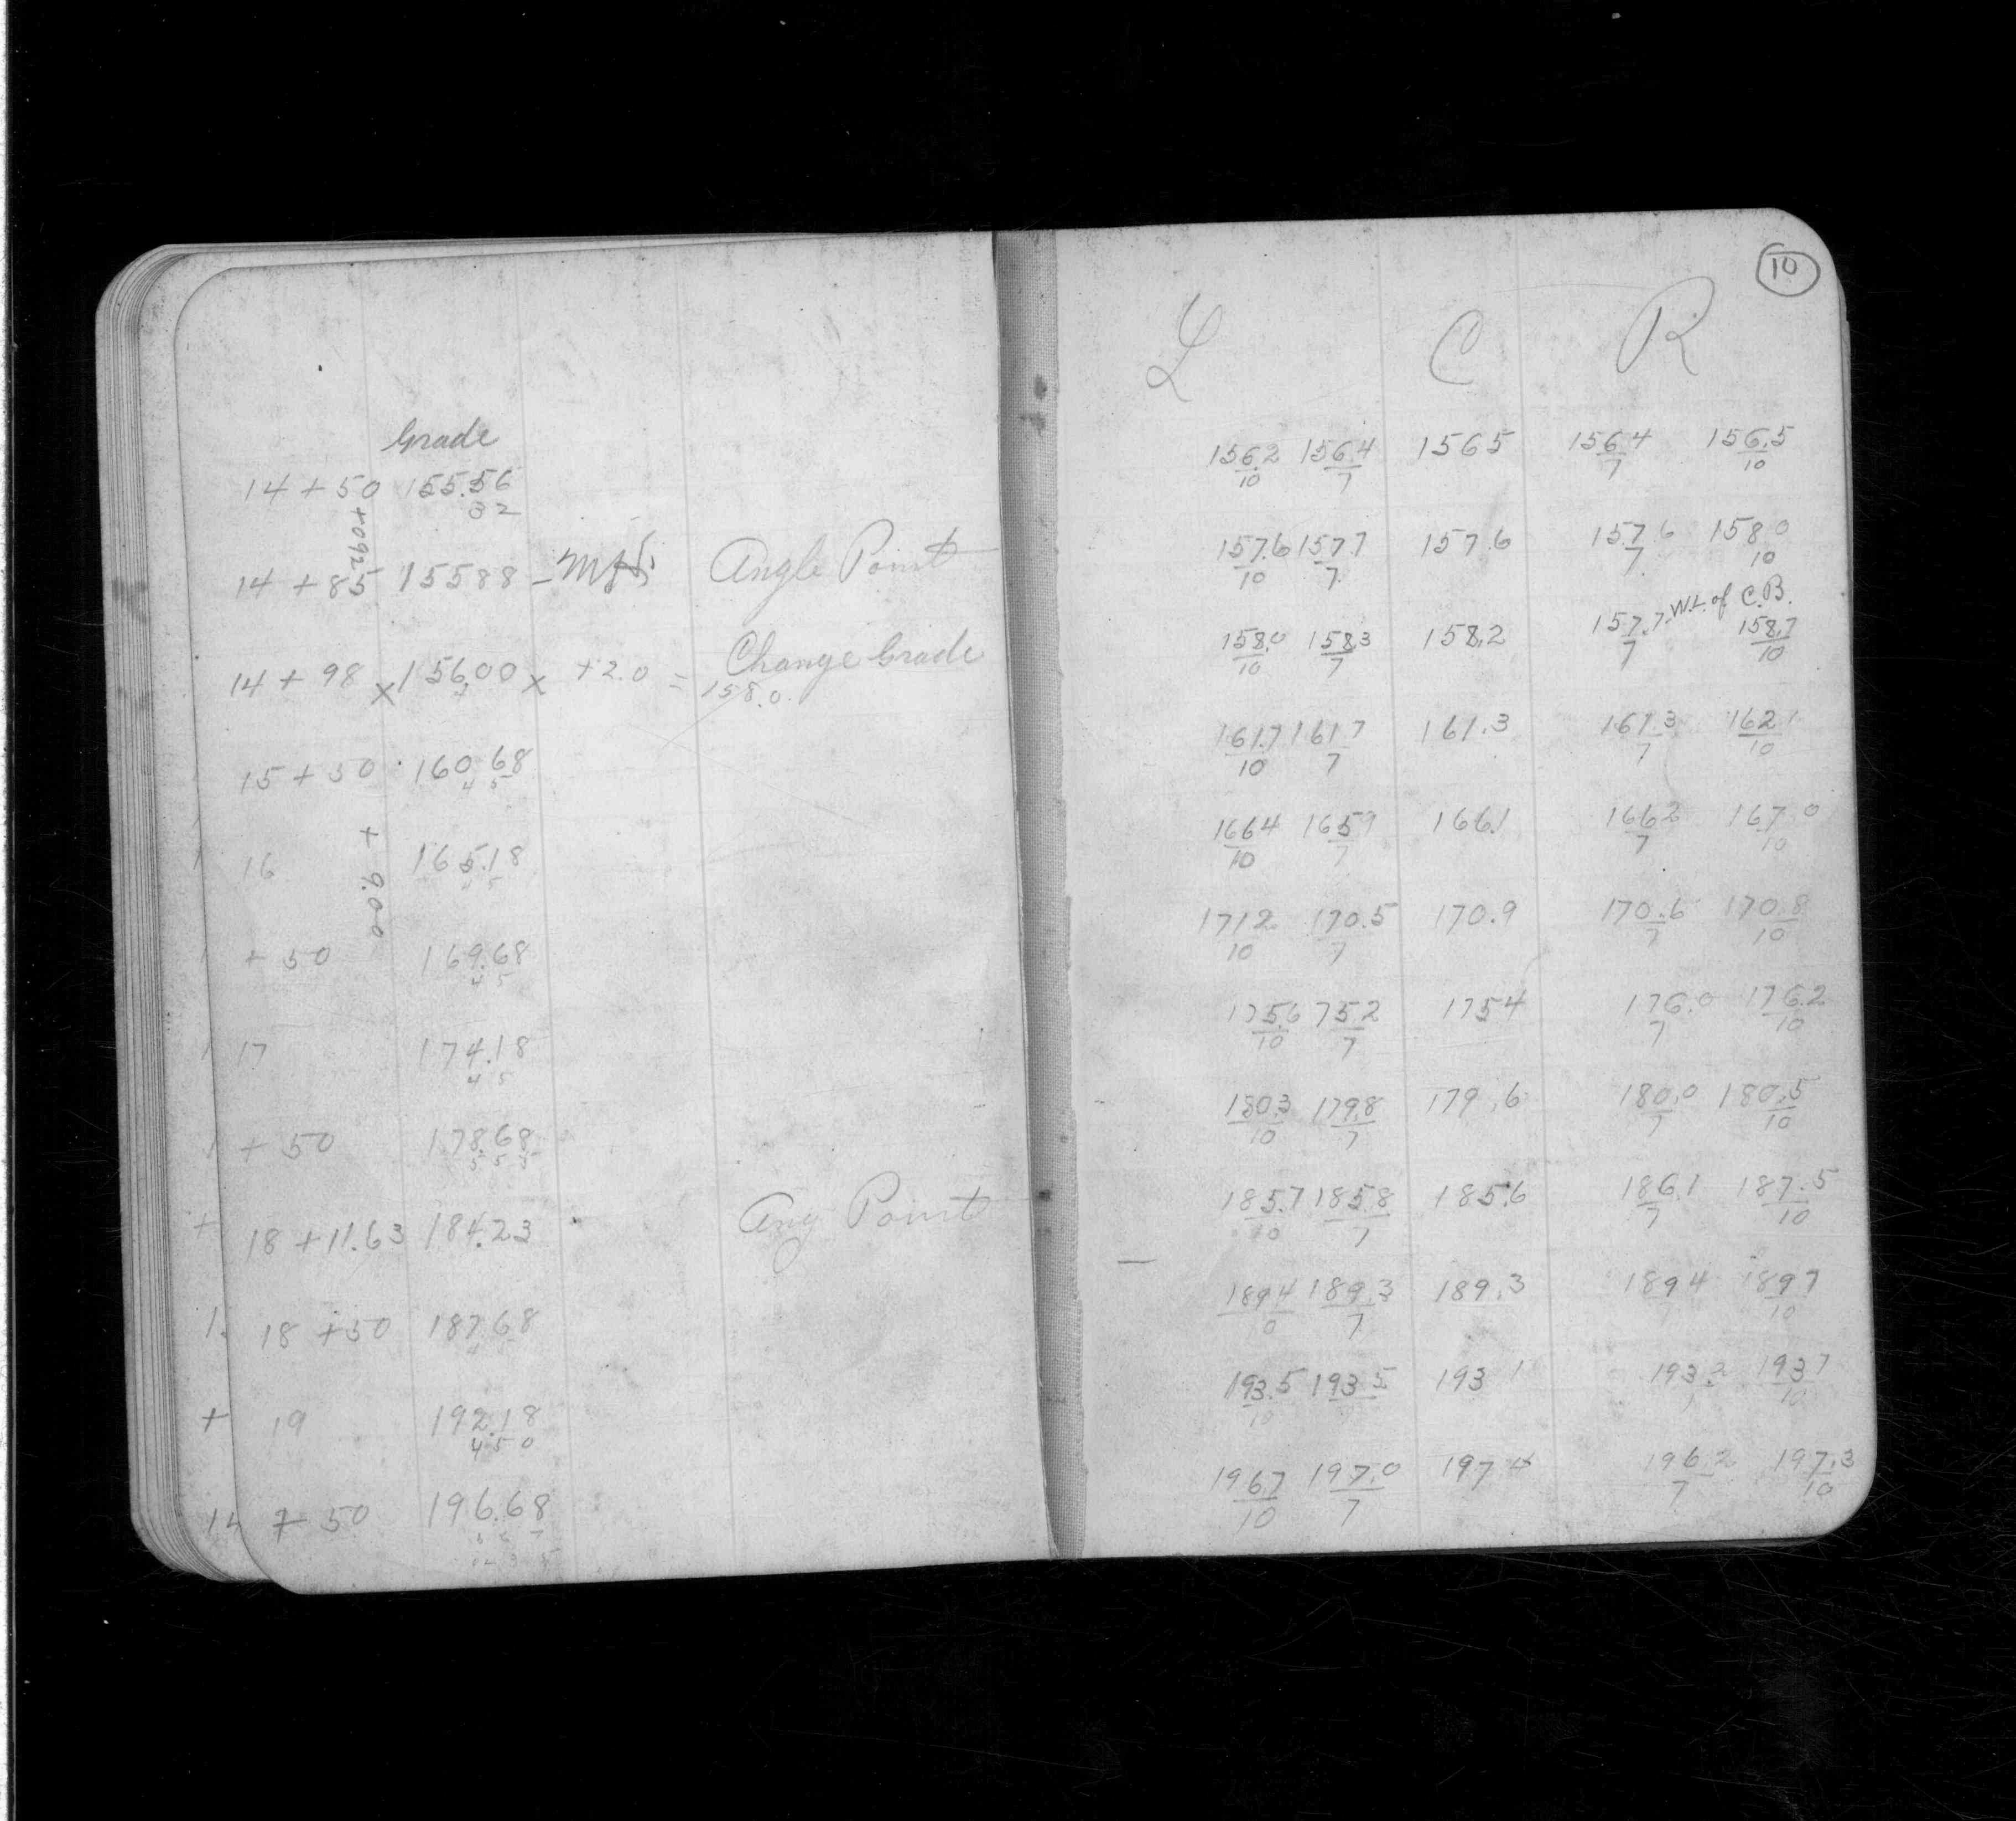 Grade
14 + 50 155.56
32
+092
14 + 85 155 88 - Angle Point
14 + 98 x 156.00 x +2.0 = Change Grade
158.0
15 + 50 160.68
4 5
+ 9.00
16 165.18
4 5
+ 50 169.68
4 5
17 174.18
4 5
+ 50 178.68
5 5 5
18 + 11.63 184.23 Ang Point
18 + 50 187.68
19 192.18
4 5 0
+ 50 196.68
10
L C R
156.2 156.4 156 5 156 4 156.5
10 7 7 10
157.6 157.7 157.6 157.6 158.0
10 7 7 10
W.L. of C.B.
158.0 158.3 158.2 157.7 158.7
10 7 7 10
161.7 161 7 161.3 161.3 162 1
10 7 7 10
166 4 165 9 166.1 166 2 167.0
10 7 7 10
171 2 170.5 170.9 170.6 170.8
10 7 7 10
175.6 75.2 175 4 176.0 176.2
10 7 7 10
180.3 179.8 179.6 180.0 180.5
10 7 7 10
185.7 185.8 185.6 186.1 187.5
10 7 7 10
189.4 189.3 189.3 189 4 189 7
10 7 10
193.5 193 5 193 1 193.2 193 7
10 7 10
196.7 197.0 197 4 196.2 197.3
10 7 7 10